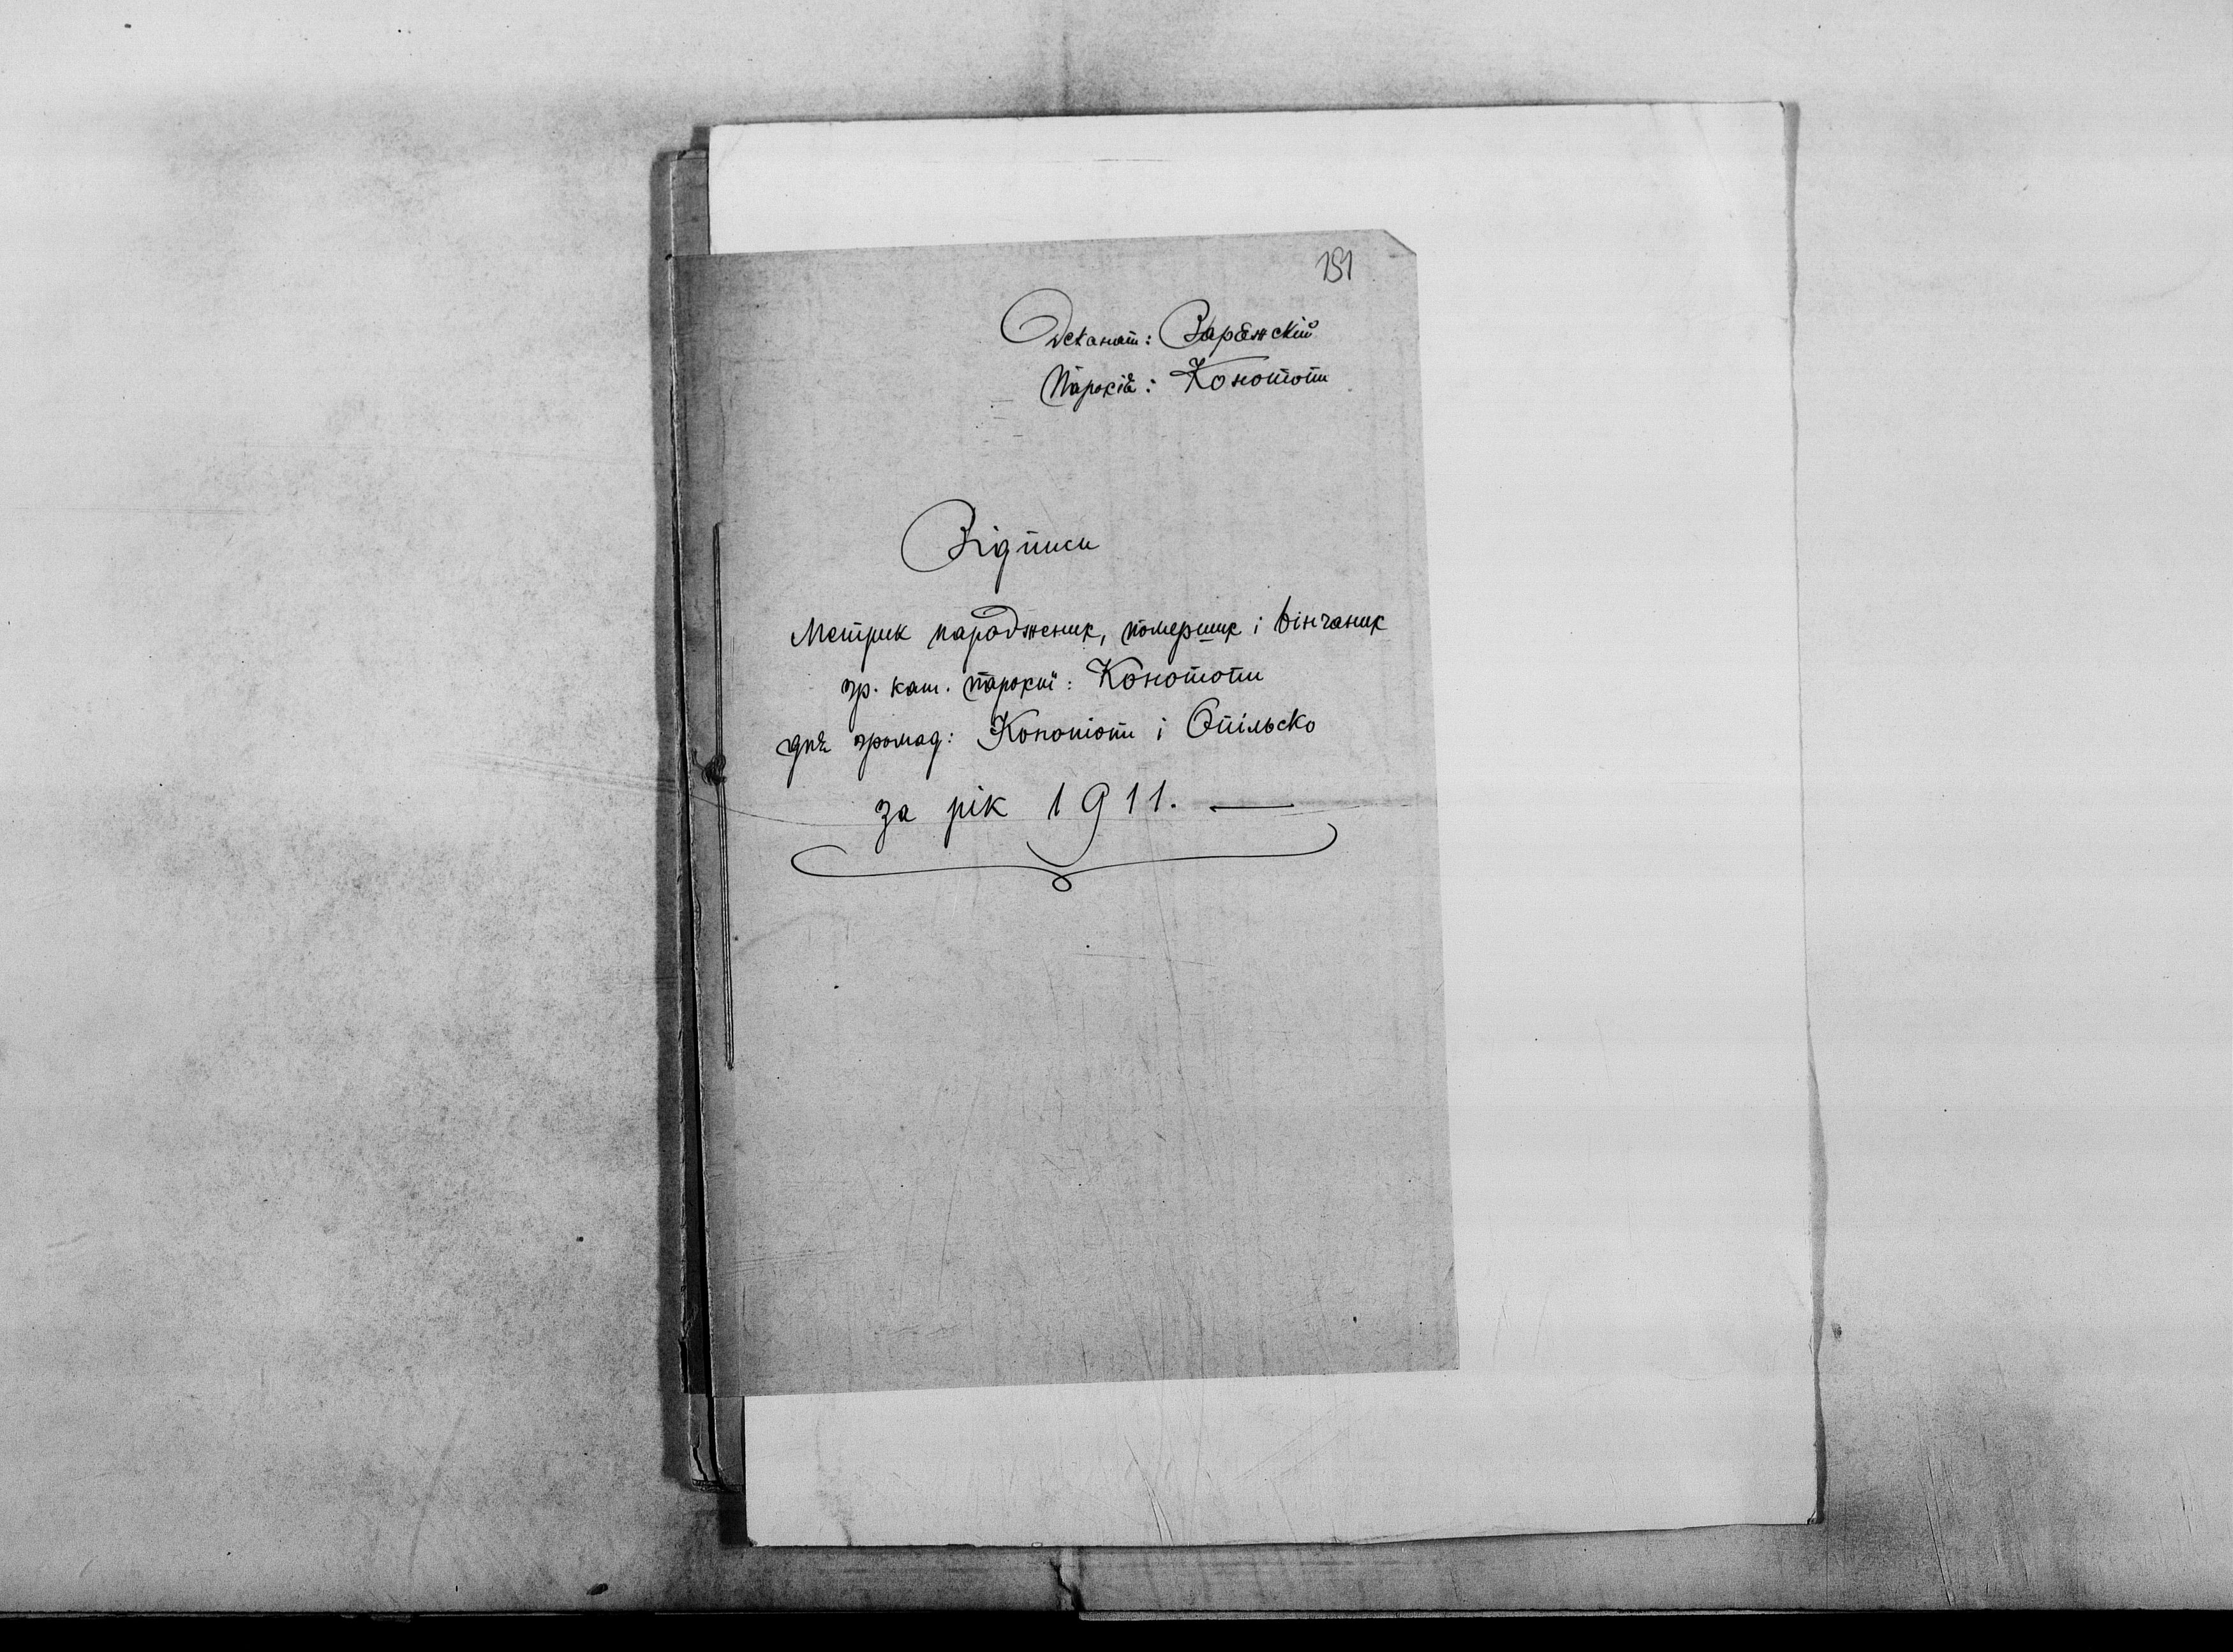 151
Деканат: Варяжскій
Парохія: Конотопи
Відписи
Метрик народжених, померших і вінчаних
гр. кат. парохії: Конотопи
для громад: Конотопи і Опільско
за рік 1911. —